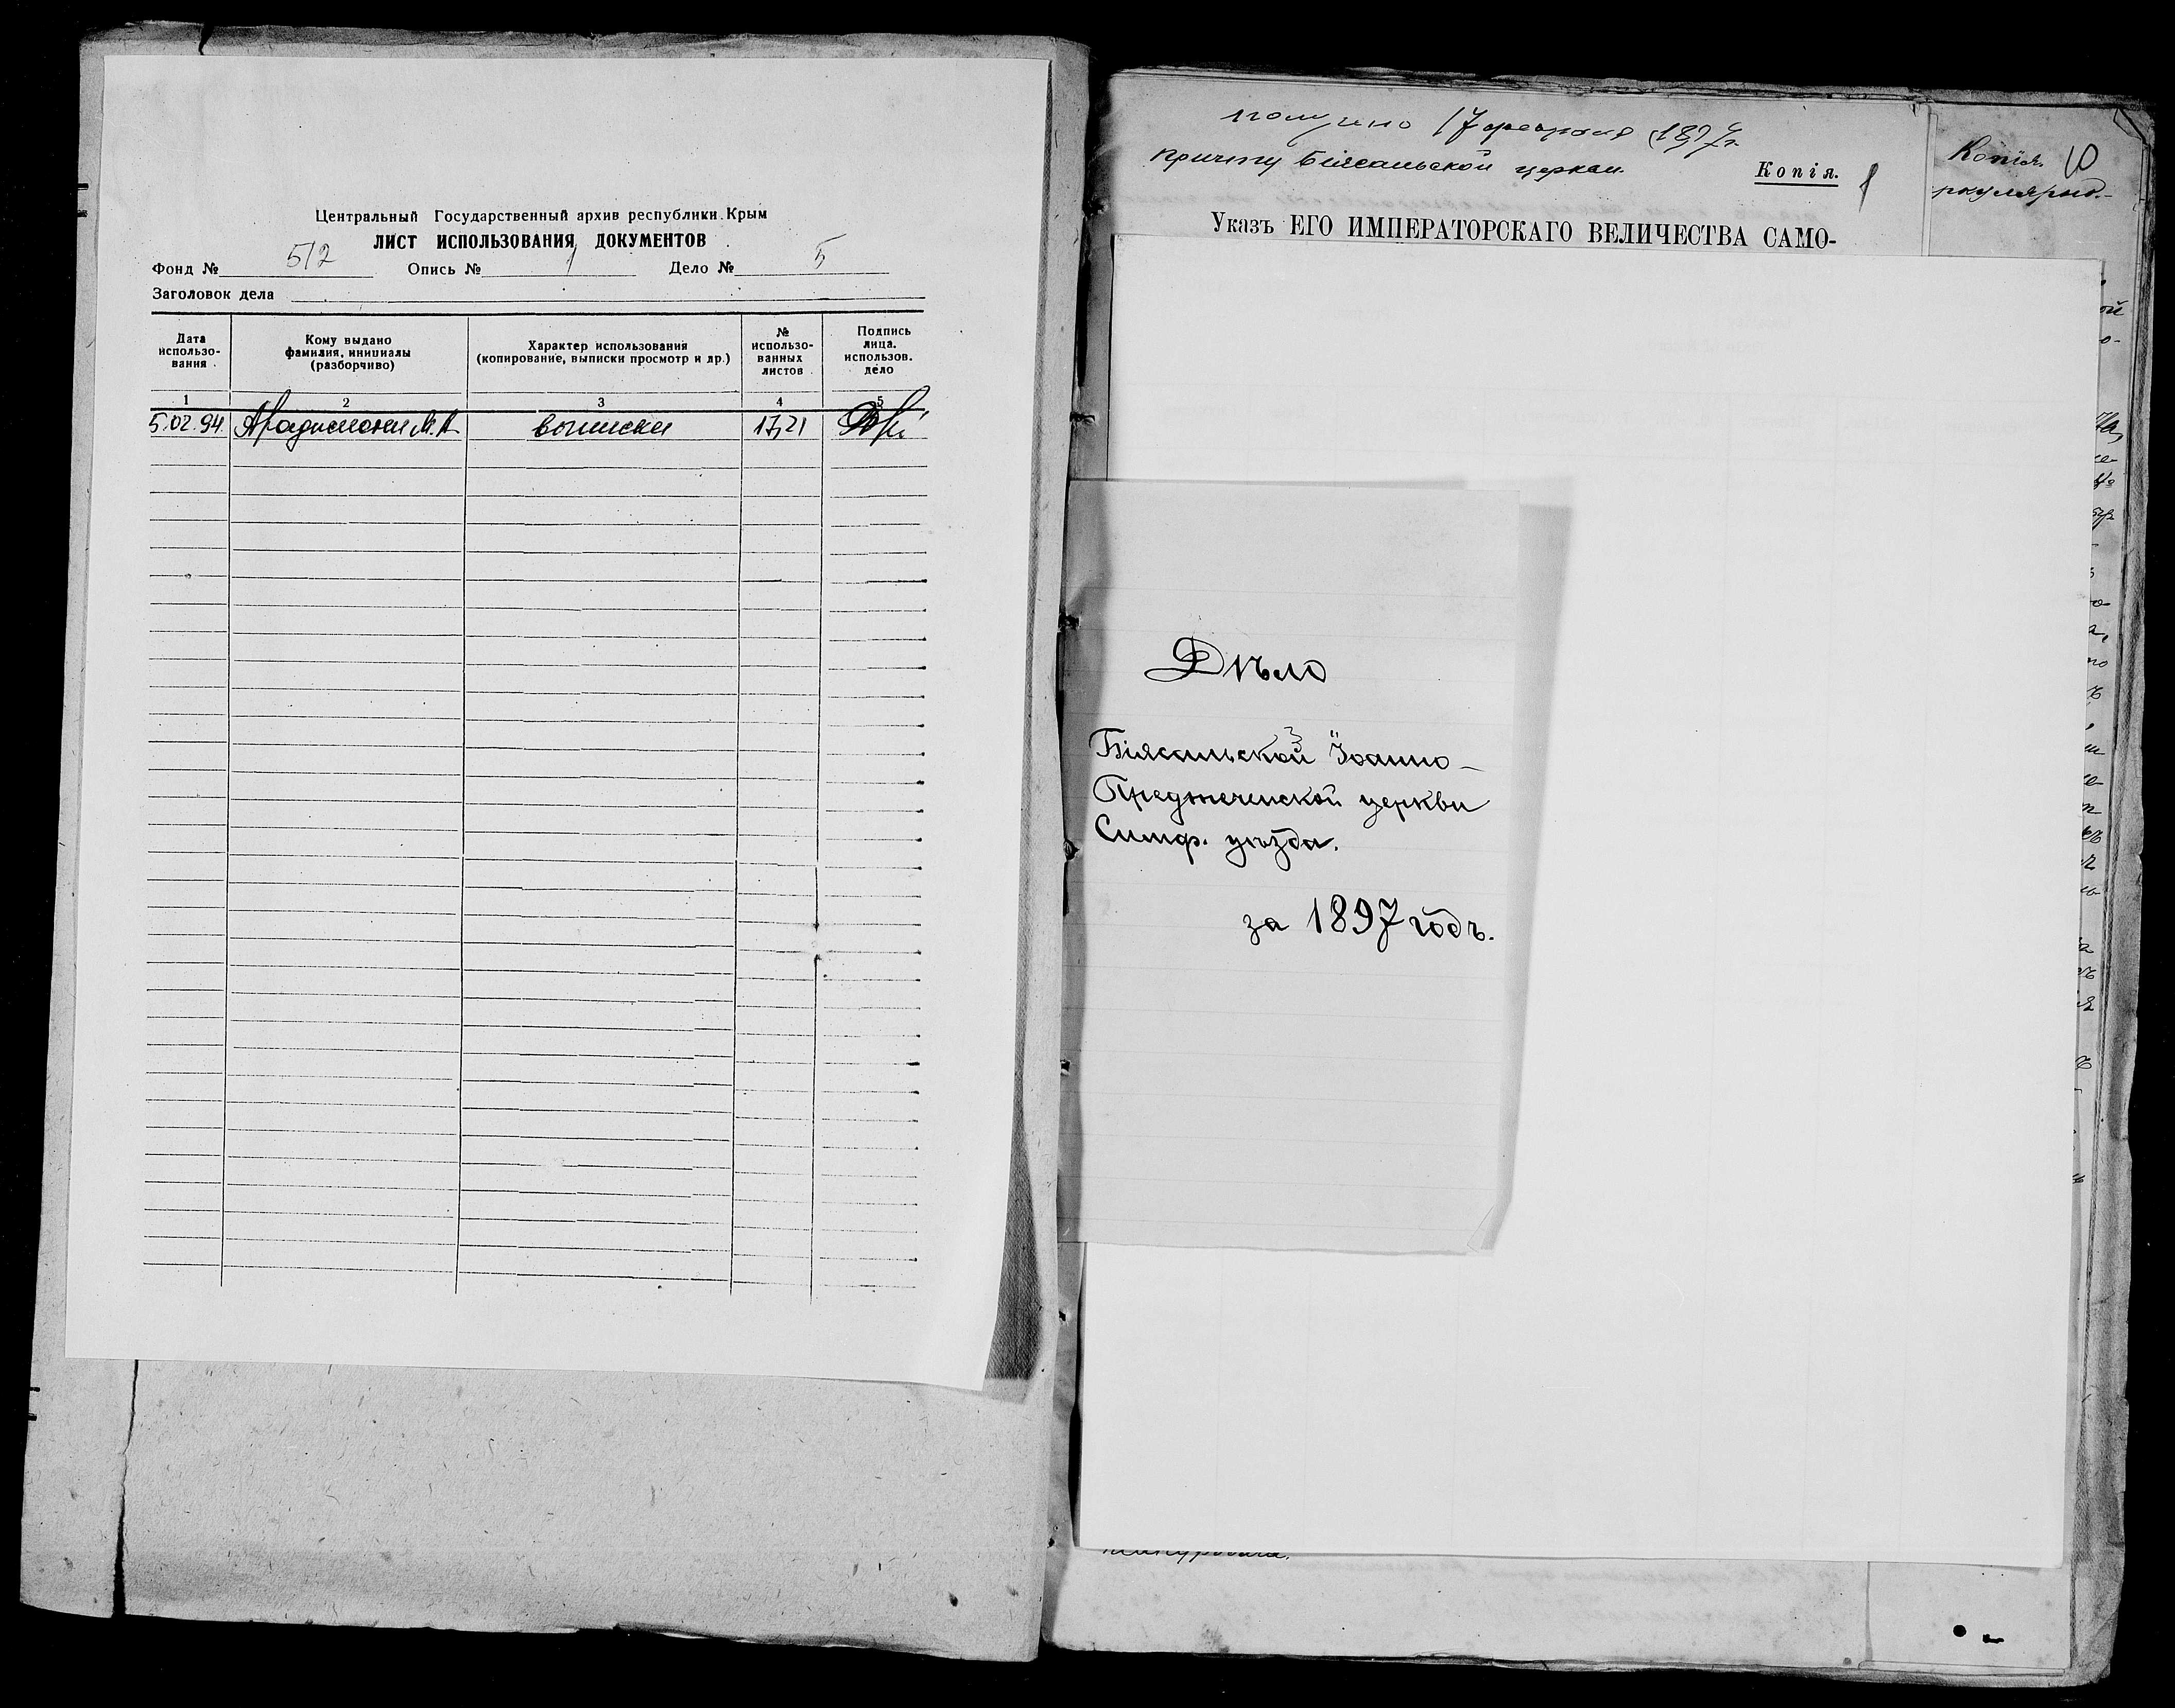 Центральный Государственный архив республики Крым
ЛИСТ ИСПОЛЬЗОВАНИЯ ДОКУМЕНТОВ
Фонд № 512 Опись № 1 Дело № 5
Заголовок дела
Дата использо-вания
Кому выдано фамилия, инициалы (разборчиво)
Характер использования (копирование, выписки просмотр и др.)
№ использо-ванных листов
Подпись лица. использов. дело
1 2 3 4 5
5.02.94 М.А. выписки 17,21
получено 17 февраля 1897 г.
Причту Біясальской церкви.
Копія.
1
Указъ ЕГО ИМПЕРАТОРСКАГО ВЕЛИЧЕСТВА САМО-
Копія. 10
ркулярно.-
Дѣло
Біясальской Іоанно-
Предтеченской церкви
Симф. уѣзда.
за 1897 годъ.